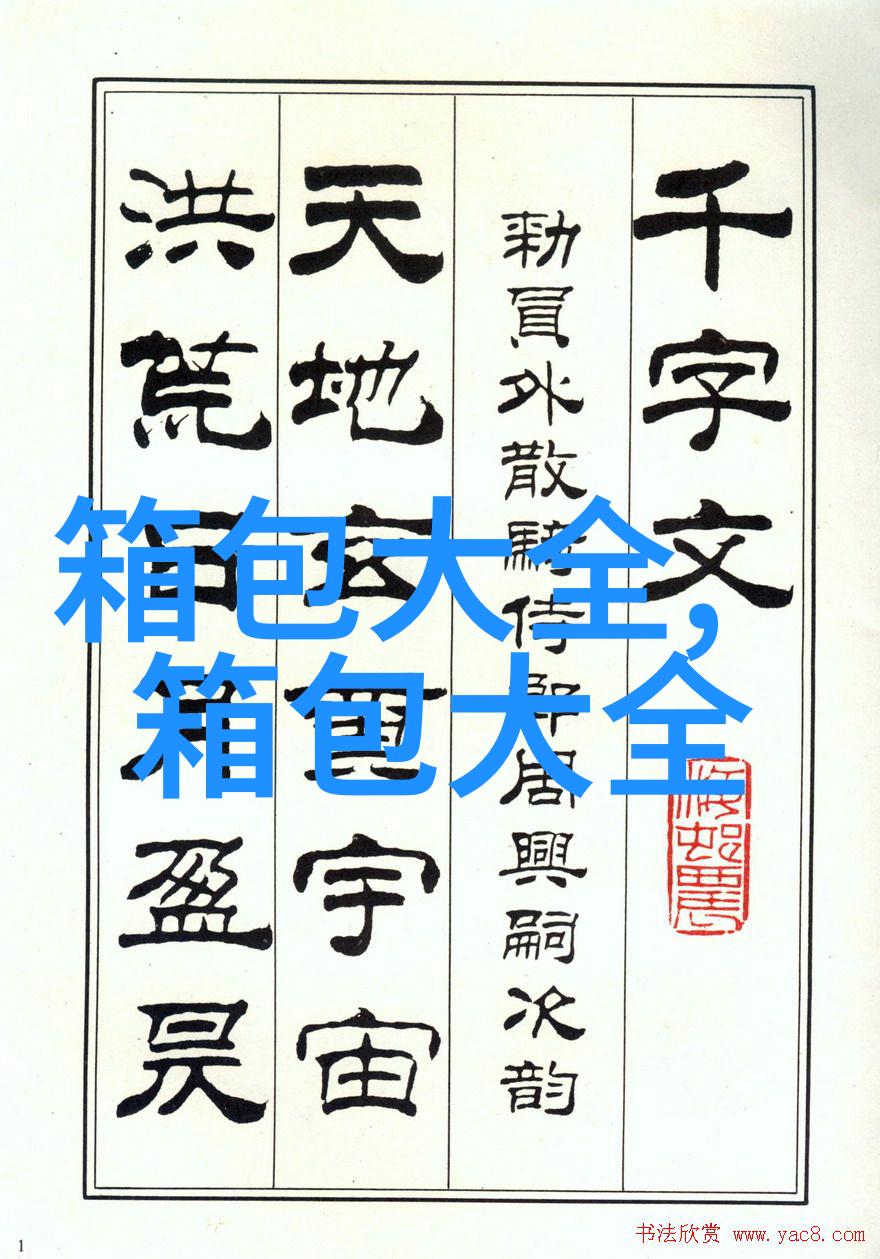 千字文
勑員外散騎侍郎周興嗣次韵
天地玄黃宇宙
洪荒日月盈昃
箱包大全,
箱包大全
1
书法欣赏 www.yac8.com